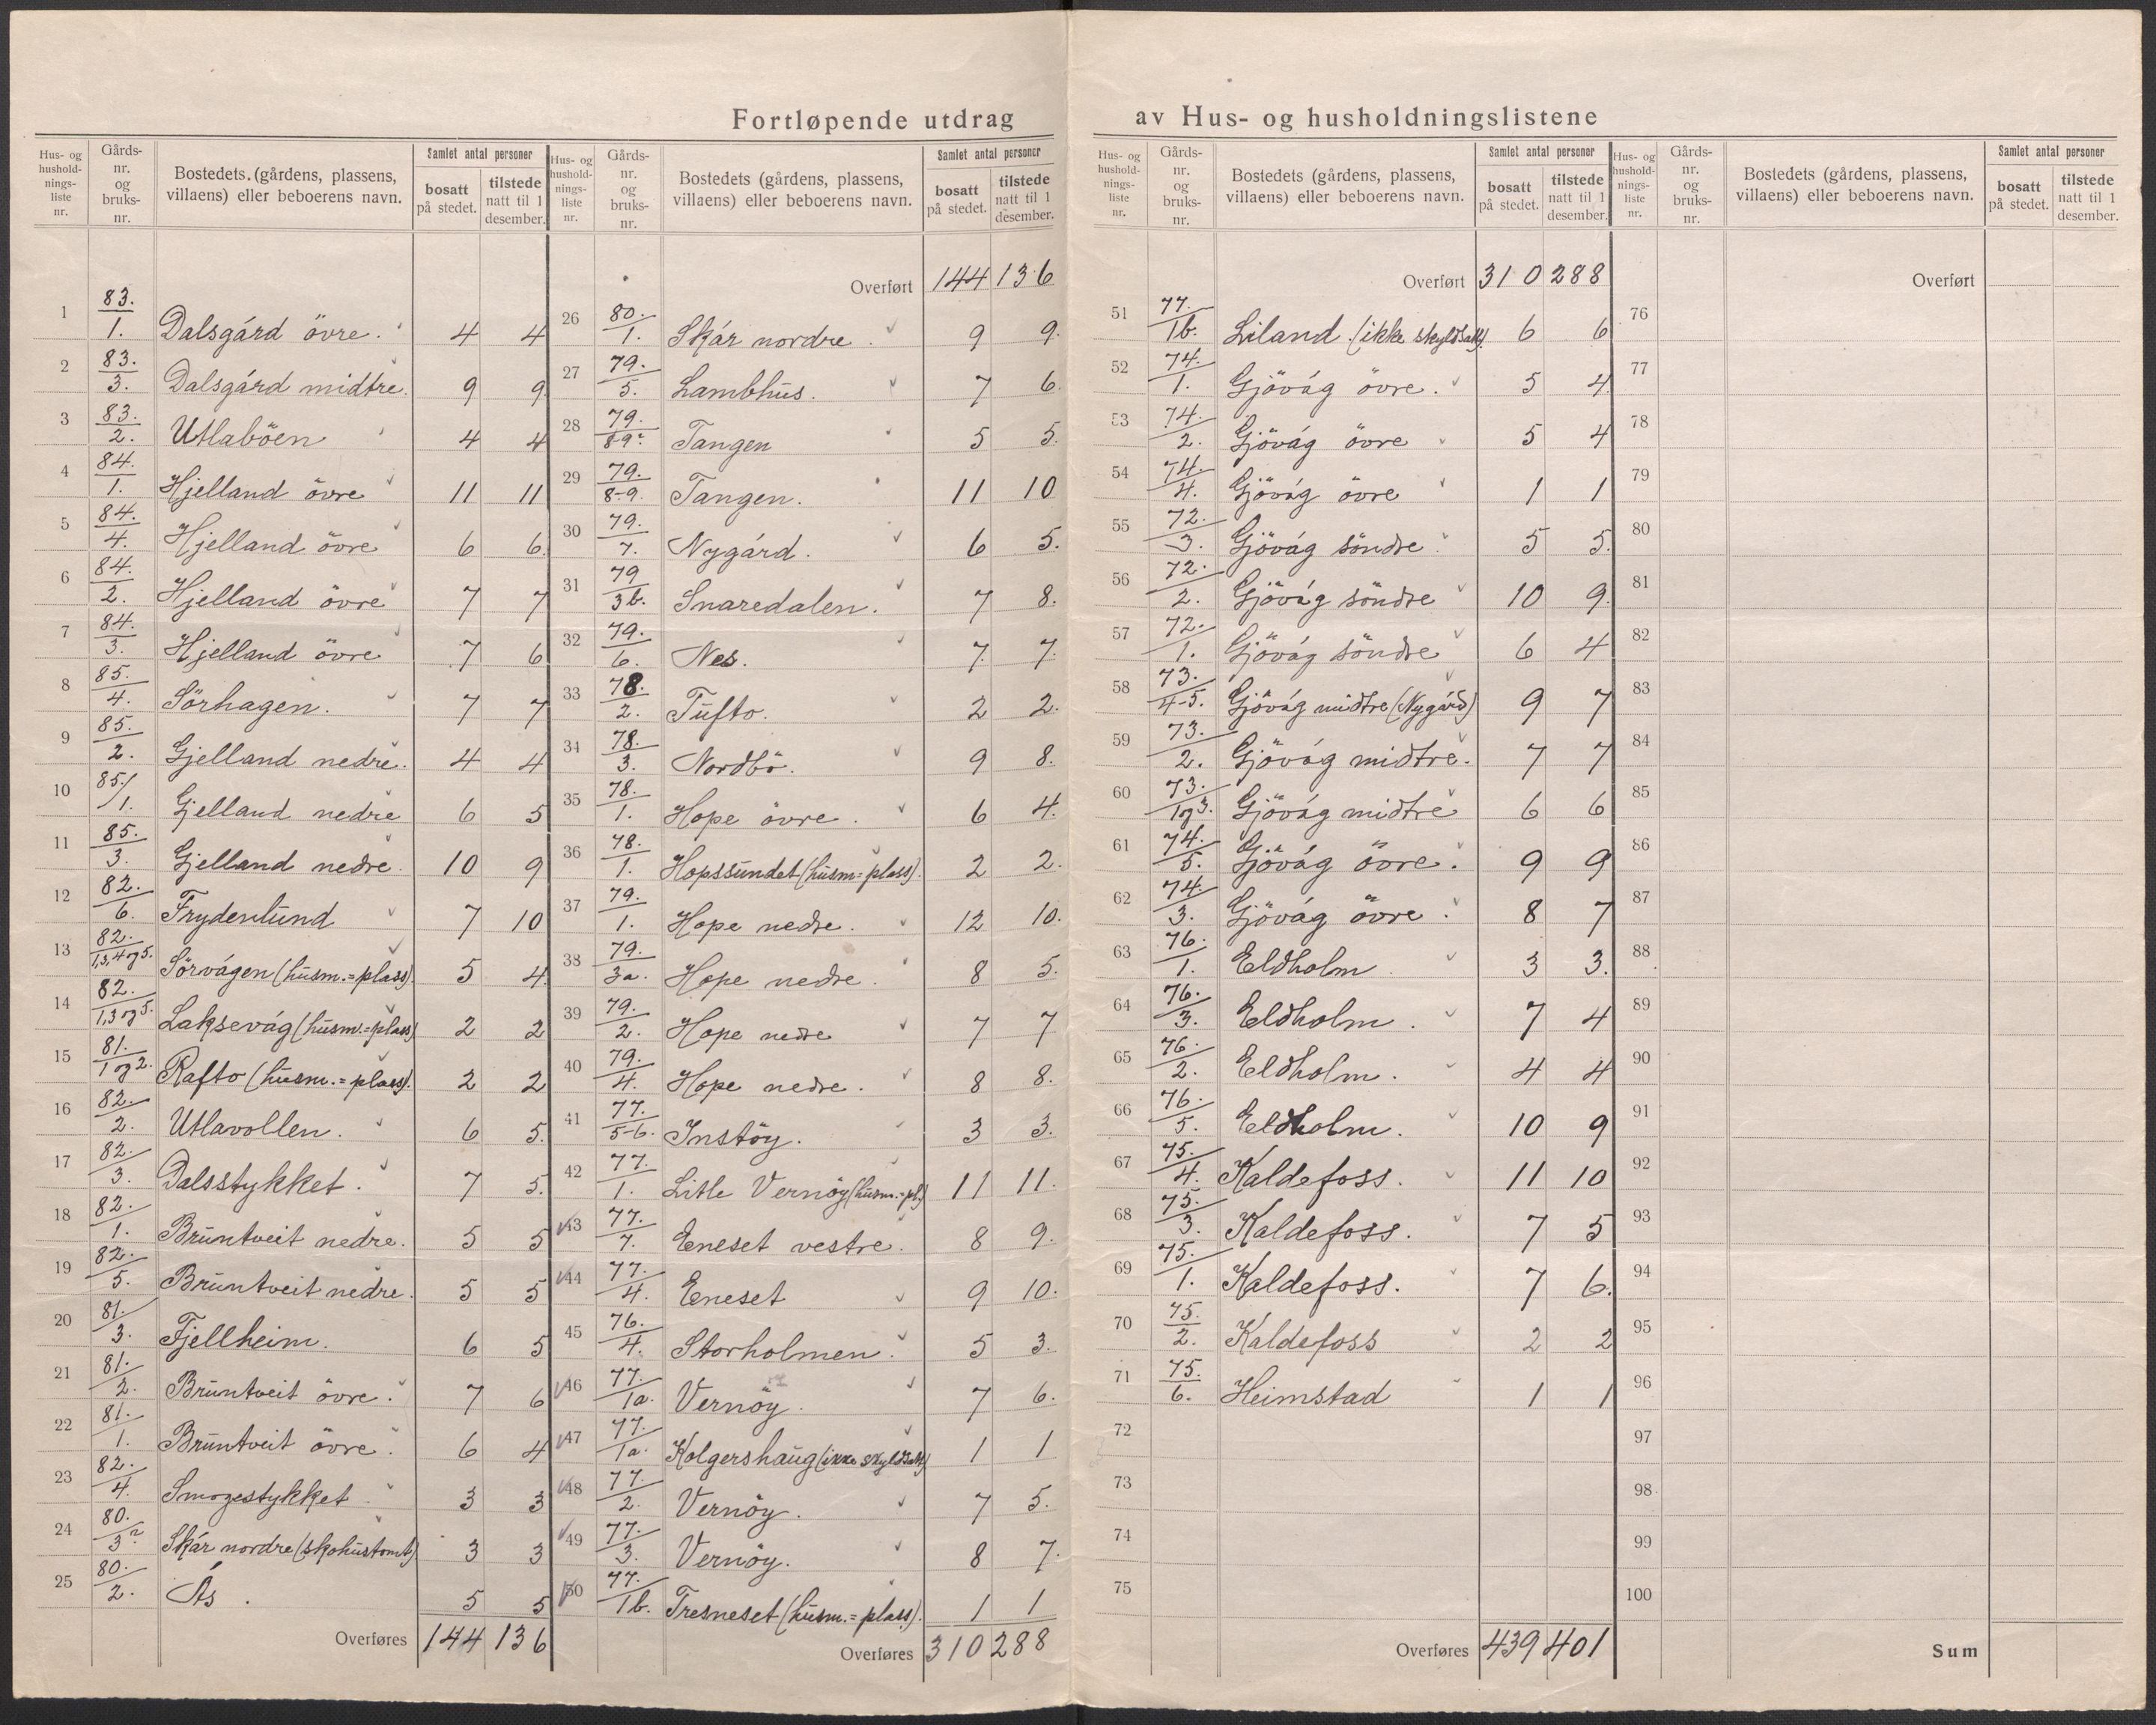 Fortløpende utdrag av Hus- og husholdningslistene
Hus- og husholdnings-liste nr. | Gårds-nr. og bruks-nr. | Bostedets (gårdens, plassens, villaens) eller beboerens navn. | Samlet antal personer: bosatt på stedet. | tilstede natt til 1 desember.
1 83./1. Dalsgård övre. 4 4
2 83./3. Dalsgård midtre. 9 9
3 83./2. Utlaböen 4 4
4 84./1. Hjelland övre 11 11
5 84./4. Hjelland övre 6 6.
6 84./2. Hjelland övre 7 7
7 84./3. Hjelland övre 7 6
8 85./4. Sörhagen. 7 7
9 85./2. Gjelland nedre. 4 4
10 85./1. Gjelland nedre 6 5
11 85./3. Gjelland nedre. 10 9
12 82./6. Frydenlund 7 10
13 82./1,3,4 og 5. Sörvågen (husm.=plass). 5 4.
14 82./1,3 og 5. Laksevåg (husm.=plass) 2 2
15 81./1 og 2. Rafto (husm.=plass). 2 2
16 82./2. Utlavollen. 6 5.
17 82./3. Dalsstykket. 7 5.
18 82./1. Bruntveit nedre. 5 5
19 82./5. Bruntveit nedre. 5 5
20 81./3. Fjellheim. 6 5
21 81./2. Bruntveit övre. 7 6
22 81./1. Bruntveit övre. 6 4
23 82./4. Smogestykket. 3 3
24 80./3 Skår nordre (skohustomt) 3 3
25 80./2. Ås. 5 5
Overføres 144 136
Overført 144 136
26 80./1. Skår nordre. 9 9.
27 79./5. Lambhus. 7 6.
28 79./8-9. Tangen 5 5.
29 79./8-9. Tangen. 11 10
30 79./7. Nygård. 6 5.
31 79/3b. Snaredalen. 7 8.
32 79./6. Nes. 7. 7.
33 78./2. Tufto. 2 2.
34 78./3. Nordbö. 9 8.
35 78./1. Hope övre. 6 4.
36 78./1. Hopssundet (husm=plass). 2 2.
37 79./1. Hope nedre. 12 10.
38 79./3a. Hope nedre. 8 5.
39 79./2. Hope nedre 7 7
40 79./4. Hope nedre. 8 8.
41 77./5-6. Instöy. 3 3.
42 77./1. Litle Vernöy (husm.=pl.) 11 11.
43 77./7. Eneset vestre. 8 9.
44 77./4. Eneset 9 10.
45 76./4. Storholmen. 5 3.
46 77./1a. Vernöy. 7 6.
47 77./1a. Kolgershaug (ikke skyldsatt) 1 1
48 77./2. Vernöy. 7 5.
49 77./3. Vernöy. 8 7.
50 77./1b. Tresneset (husm.=plass). 1 1
Overføres 310 288
Overført 310 288
51 77./1b. Liland. (ikke skyldsatt). 6 6
52 74./1. Gjövåg övre. 5 4.
53 74./2. Gjövåg övre 5 4
54 74./4. Gjövåg övre 1 1
55 72./3. Gjövåg söndre 5 5.
56 72./2. Gjövåg söndre 10 9.
57 72./1. Gjövåg söndre 6 4
58 73./4-5. Gjövåg midtre (Nygård) 9 7
59 73./2. Gjövåg midtre. 7 7
60 73./1 og 3. Gjövåg midtre 6 6
61 74./5. Gjövåg övre. 9 9
62 74./3. Gjövåg övre. 8 7
63 76./1. Eldholm. 3 3.
64 76./3. Eldholm. 7 4
65 76./2. Eldholm. 4 4
66 76./5. Eldholm. 10 9
67 75./4. Kaldefoss. 11 10
68 75./3. Kaldefoss. 7 5
69 75./1. Kaldefoss. 7 6.
70 75./2. Kaldefoss 2 2
71 75./6. Heimstad 1 1
72
73
74
75
Overføres 439 401
Overført
76
77
78
79
80
81
82
83
84
85
86
87
88
89
90
91
92
93
94
95
96
97
98
99
100
Sum